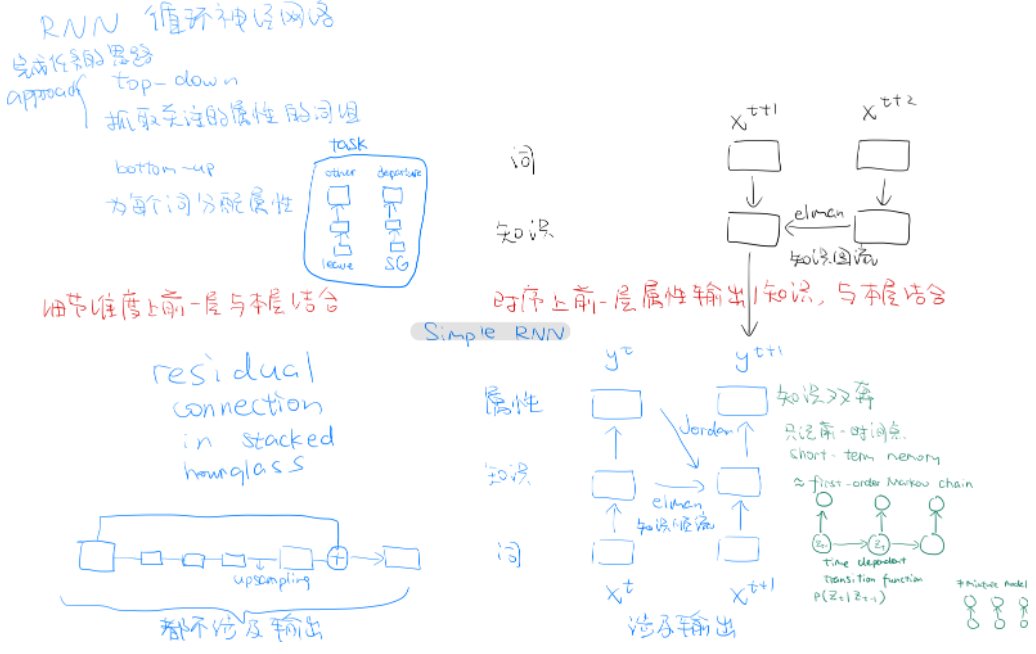 RNN 循环神经网络
完成任务的思路
approach
top-down
抓取关注的属性的词组
bottom-up
为每个词分配属性
task
other departure
leave SG
x^{t+1} x^{t+2}
词
知识
elman
知识回流
细节维度上前一层与本层结合
时序上前一层属性输出/知识,与本层结合
Simple RNN
residual
connection
in stacked
hourglass
upsampling
都不涉及输出
y^t y^{t+1}
属性
Jordan
知识
elman
知识顺流
词
x^t x^{t+1}
涉及输出
知识双奔
只记前一时间点
short-term memory
≈ first-order Markov chain
Z_{t-1} Z_t
time dependent
transition function
P(Z_t|Z_{t-1})
≠ Mixture Model